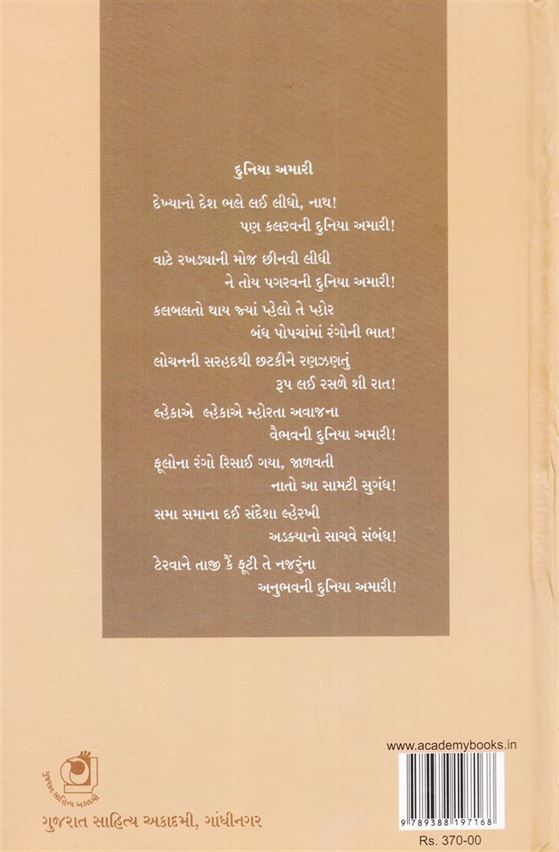 દુનિયા અમારી
દેખ્યાનો દેશ ભલે લઈ લીધો, નાથ!
પણ કલરવની દુનિયા અમારી!
વાટે રખડ્યાની મોજ છીનવી લીધી
ને તોય પગરવની દુનિયા અમારી!
કલબલતો થાય જ્યાં પ્હેલો તે પ્હોર
બંધ પોપચાંમાં રંગોની ભાત!
લોચનની સરહદથી છટકીને રણઝણતું
રૂપ લઈ રસળે શી રાત!
લ્હેકાએ લ્હેકાએ મ્હોરતા અવાજના
વૈભવની દુનિયા અમારી!
ફૂલોના રંગો રિસાઈ ગયા, જાળવતી
નાતો આ સામટી સુગંધ!
સમા સમાના દઈ સંદેશા લ્હેરખી
અડક્યાનો સાચવે સંબંધ!
ટેરવાને તાજી કૈં ફૂટી તે નજરુંના
અનુભવની દુનિયા અમારી!
www.academybooks.in
ગુજરાત સાહિત્ય અકાદમી
ગુજરાત સાહિત્ય અકાદમી, ગાંધીનગર
9 789388 197168
Rs. 370-00